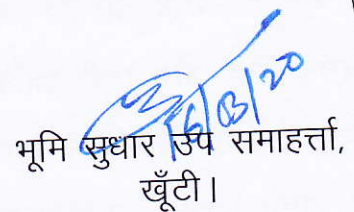 16/03/20
भूमि सुधार उप समाहर्त्ता,
खूँटी।